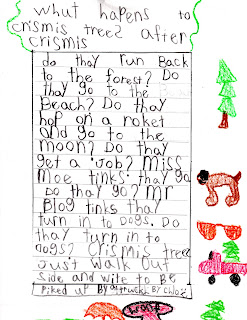 what hapens to
crismis trees after
crismis
do thay run Back
to the forest? Do
thay go to the
Beach? Do thay
hop on a roket
and go to the
moon? Do thay
get a job? Miss
Moe tinks thay go
Do thay go? Mr
Blog tinks thay
turn in to Dogs. Do
thay turn in to
Dogs? Crismis trees
Just walk out
side and wite to Be
Piked up By a truck. By chloe
woof